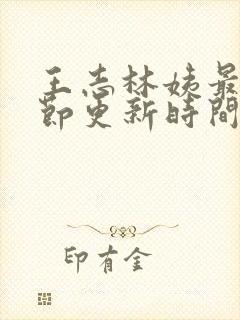 王志林姨最
節更新時間
印有金